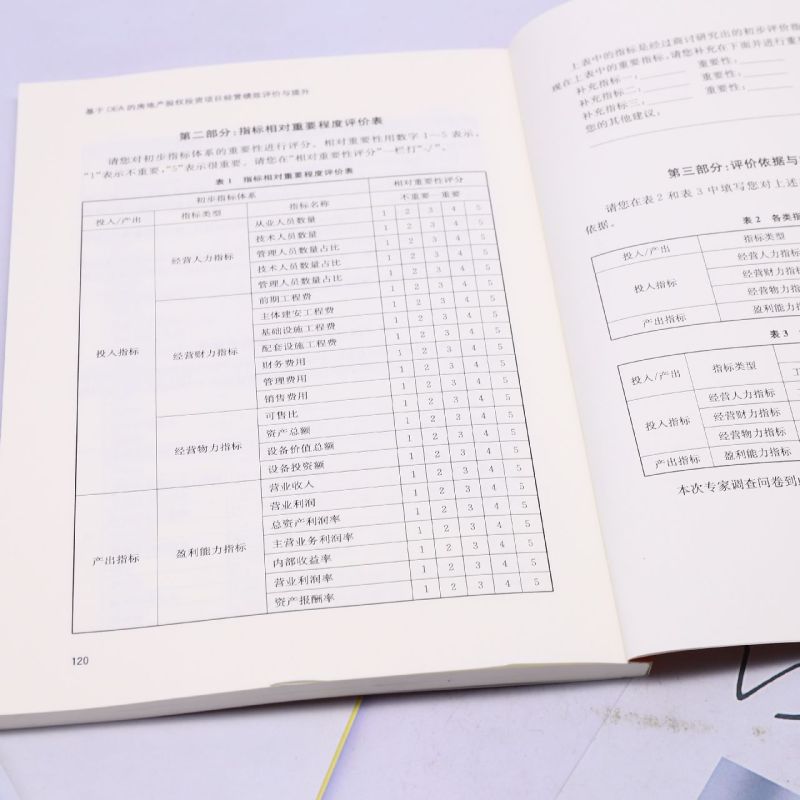 基于DEA的房地产股权投资项目经营绩效评价与提升
第二部分：指标相对重要程度评价表
请您对初步指标体系的重要性进行评分。相对重要性用数字1～5表示，
“1”表示不重要，“5”表示很重要。请您在“相对重要性评分”一栏打“√”。
表1 指标相对重要程度评价表
初步指标体系 相对重要性评分
投入/产出 指标类型 指标名称 不重要—重要
从业人员数量 1 2 3 4 5
技术人员数量 1 2 3 4 5
经营人力指标 管理人员数量占比 1 2 3 4 5
技术人员数量占比 1 2 3 4 5
管理人员数量占比 1 2 3 4 5
前期工程费 1 2 3 4 5
主体建安工程费 1 2 3 4 5
基础设施工程费 1 2 3 4 5
投入指标 经营财力指标 配套设施工程费 1 2 3 4 5
财务费用 1 2 3 4 5
管理费用 1 2 3 4 5
销售费用 1 2 3 4 5
可售比 1 2 3 4 5
经营物力指标 资产总额 1 2 3 4 5
设备价值总额 1 2 3 4 5
设备投资额 1 2 3 4 5
营业收入 1 2 3 4 5
营业利润 1 2 3 4 5
总资产利润率 1 2 3 4 5
产出指标 盈利能力指标 主营业务利润率 1 2 3 4 5
内部收益率 1 2 3 4 5
营业利润率 1 2 3 4 5
资产报酬率 1 2 3 4 5
120
上表中的指标是经过商讨研究出的初步评价指
现在上表中的重要指标，请您补充在下面并进行重要
补充指标一： 重要性：
补充指标二： 重要性：
补充指标三： 重要性：
您的其他建议：
第三部分：评价依据与
请您在表2和表3中填写您对上述
依据。
表2 各类指
投入/产出 指标类型
投入指标 经营人力指标
经营财力指标
经营物力指标
产出指标 盈利能力指标
表3
投入/产出 指标类型
投入指标 经营人力指标
经营财力指标
经营物力指标
产出指标 盈利能力指标
本次专家调查问卷到